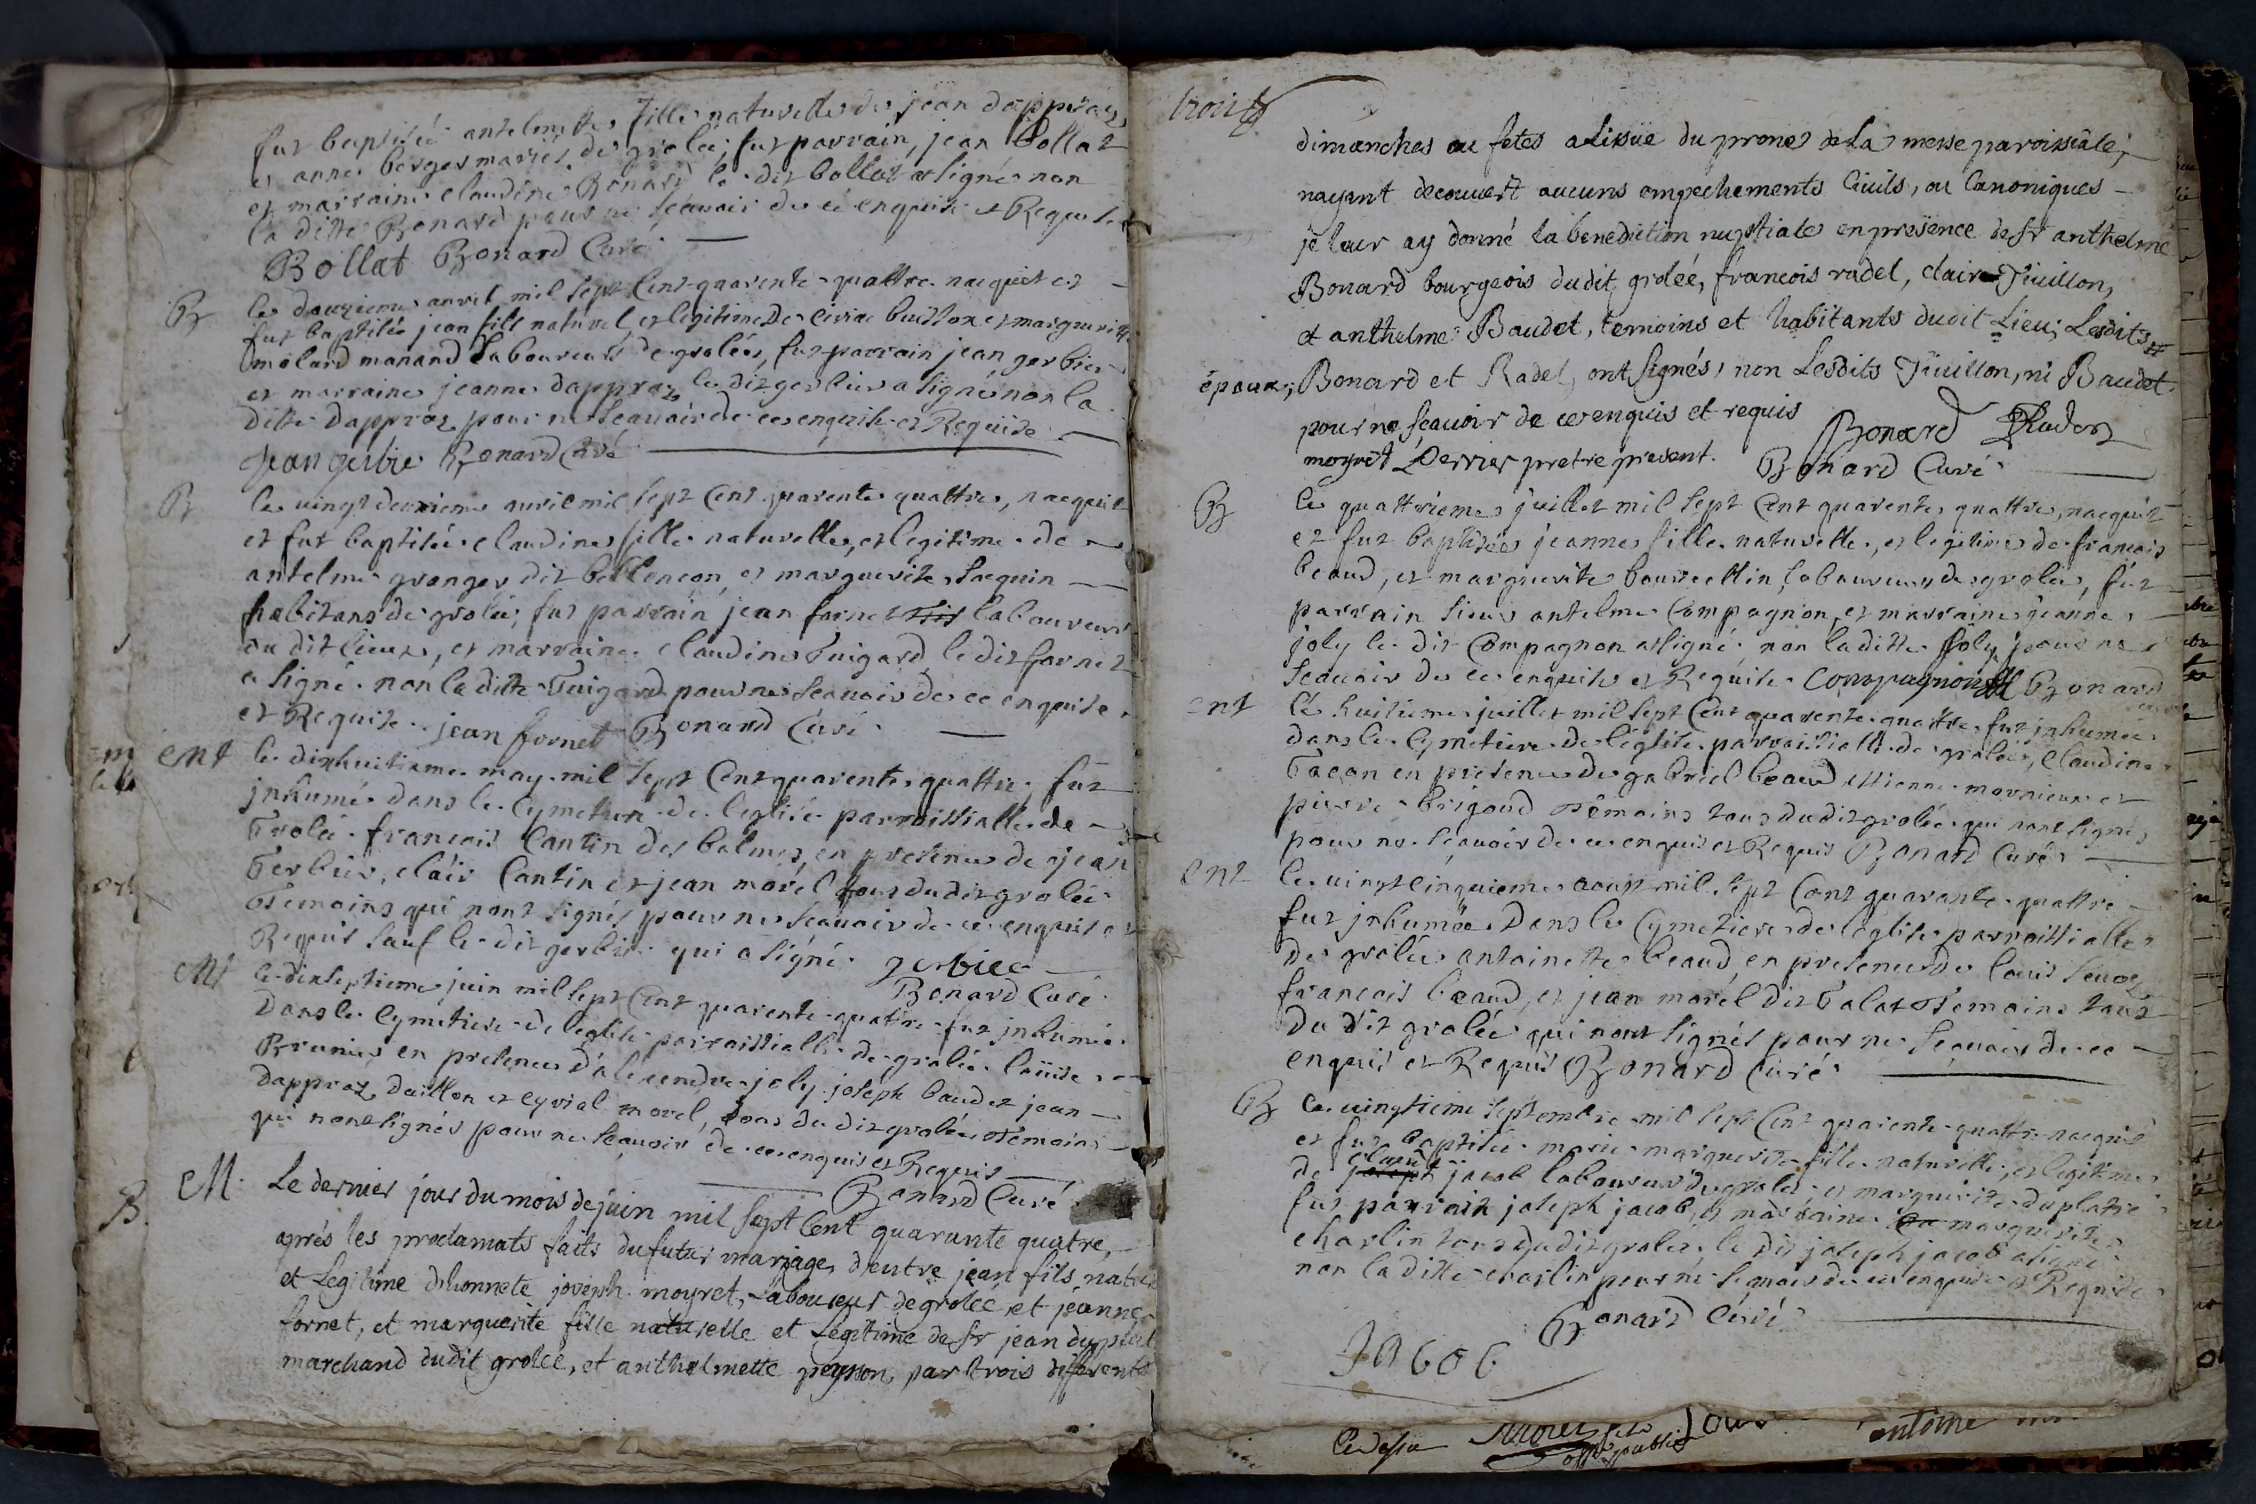 fut baptisée antelmette fille naturelle de jean dappraz
et anne berger mariés de grolée, fut parrain, jean Bollat
et marraine claudine Bonard le dit bollat a signé non
la ditte Bonard pour ne scavoir de ce enquise et Requise
Bollat Bonard Curé
B le douzieme avril mil sept Cent quarente quattre nacquit et
fut baptisée jean fils naturel et legitime de civiac buisson et marguerite
molard manand Laboureurs de grolée, fut parrain jean gerbier
et marraine jeanne dappraz le dit gerbier a signé non la
ditte dappraz pour ne scavoir de ce enquise et Requise
Jean gerbie Bonard Curé
B le vingt deuxieme avril mil sept Cent quarente quattre, nacquit
et fut baptisée claudine fille naturelle, et legitime de
antelme granger dit bellencon et marguerite Jacquin
habitans de grolée; fut parrain jean fornet laboureur
du dit lieu, et marraine claudine Guigard, le dit fornet
a signé non la ditte Guigard pour ne scavoir de ce enquise
et Requise jean fornet Bonard Curé
ent le dixhuitieme may mil sept Cent quarente quattre fut
jnhumé dans le Cymetiere de l'eglise parroissialle de
Grolée francois Cantin des balmes, en presence de jean
Gerbier, clair Cantin et jean morel tous dudit grolée
Temoins qui nont signés pour ne scavoir de ce enquis et
Requis sauf le dit gerbier qui a signé gerbier
Bonard Curé
ent le dixseptieme juin mil sept Cent quarente quatre fut jnhumée
Dans le Cymetiere de l'eglise parroissialle de grolée louise
Brunier en presence d'alexendre joly joseph baudet jean
dappraz daillon et cyrial morel, tous du dit grolée Temoins
qui nont signés pour ne scavoir de ce enquis et Requis
Bonard Curé
B.
M. Le dernier jour du mois de juin mil sept Cent quarante quatre,
aprés les proclamats faits du futur mariage, d'entre jean fils naturel
et Legitime d'honnete joseph moyret, Laboureur de grolée et jeanne
fornet, et marguerite fille naturelle et Legitime de sr jean duplat
marchand dudit grolée, et anthelmette peysson, par trois differents
trois
dimanches ou fetes a Lissüe du prone de La messe paroissiale,
nayant decouvert aucuns empechements Civils, ou Canoniques
je leur ay donné la benediction nuptiale en presence de sr anthelme
Bonard bourgeois dudit grolée, francois radel, claire Jiuillon,
et anthelme Baudet, temoins et habitants dudit Lieu; Lesdits
époux; Bonard et Radel, ont signés, non Lesdits Jiuillon, ni Baudet
pour ne scavoir de ce enquis et requis Bonard
moyret Perrier pretre present. Bonard Curé
B le quattrième juillet mil sept Cent quarente quattre, nacquit
et fut baptisée jeanne fille naturelle, et legitime de francois
beaud, et marguerite bourcettin, laboureurs de grolée, fut
parrain sieur antelme Compagnon, et marraine jeanne
joly le dit Compagnon a signé non la ditte joly pour ne
scavoir de ce enquise et Requise Compagnon Bonard
curé
ent le huitieme juillet mil sept Cent quarente quattre fut jnhumée
dans le Cymetiere de l'eglise parroissialle de grolée, Claudine
Tacon en presence de gabriel beaud ettienne mornieux et
pierre brigoud Témoins tous dudit grolée qui nont signés
pour ne scavoir de ce enquis et Requis Bonard Curé
ent le vingt cinquieme aoust mil sept Cent quarante quattre
fut jnhumée Dans le Cymetiere de l'eglise parroissialle
de grolée antoinette beaud, en presence de louis
francois beaud, et jean morel dit Palat Témoins tous
du dit grolée qui nont signés pour ne scavoir de ce
enquis et Requis Bonard Curé
B le vingtieme septembre mil sept Cent quarente quattre nacquit
et fut baptisée marie marguerite fille naturelle, et legitime
de claude jacob laboureur de grolée, et marguerite duplatre
fut parrain joseph jacob, et marraine marguerite
charlin tous du dit grolée le dit joseph jacob a signé
non la ditte charlin pour ne scavoir de ce enquise et Requise
Bonard Curé
Jacob
antoine